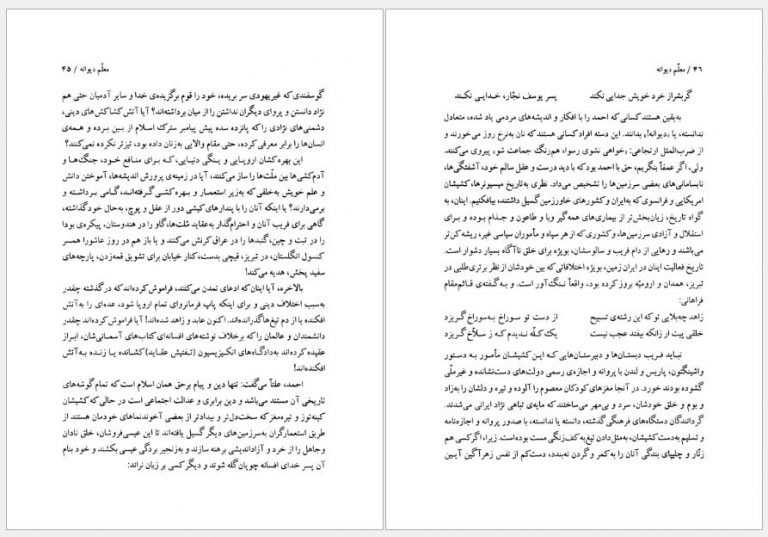 معلّم دیوانه / ۴۵
گوسفندی که غیریهودی سر بریده، خود را قوم برگزیده‌ی خدا و سایر آدمیان حتی هم
نژاد دانستن و پروای دیگران نداشتن را از میان برداشته‌اند؟ آیا آتش کشاکش‌های دینی،
دشمنی‌های نژادی را که پانزده سده پیش پیامبر سترگ اسلام از بین برده و همه‌ی
انسان‌ها را برابر معرفی کرده، حتی مقام والایی به‌زنان داده بود، تیزتر نکرده نمی‌کنند؟
این بهره‌کشان اروپایی و ینگی دنیایی، کـه بـرای منافـع خـود، جنگ‌هـا و
آدم‌کشی‌ها بین ملّت‌ها را ساز می‌کنند، آیا در زمینه‌ی پرورش اندیشه‌ها، آموختن دانش
و علم خویش به‌خلقی که به‌زیر استعمـار و بهـره کشـی گـرفته‌انـد، گامـی بـرداشتـه و
برمی‌دارند؟ یا اینکه آنان را با پندارهای کیشی دور از عقل و پوچ، به‌حال خود گذاشته،
گاهی برای فریب آنان و احترام‌گذار به‌عقاید مّلت‌ها، گاو را در هندوستان، پیکره‌ی بودا
را در تبت و چین، گنبدها را در عراق کرنش می‌کنند و یا باز هم در روز عاشورا همسر
کنسول انگلستان، در تبریز، قیچی بدست، کنار خیابان برای تشویق قمه‌زدن، پارچه‌های
سفید پخش، هدیه می‌کند!
بالاخره، آیا اینان که ادعای تمدن می‌کنند، فراموش کرده‌اند که درگذشته چقدر
به‌سبب اختلاف دینی و برای اینکه پاپ فرمانروای تمام اروپا شود، عده‌ای را به‌آتش
افکنده یا از دم تیغ‌ها گذرانده‌اند. اکنون عابد و زاهد شده‌اند! آیا فراموش کرده‌اند چقدر
دانشمندان و عالمان را که برخلاف نوشته‌های افسانه‌ای کتاب‌های آسمانی‌شان، ابـراز
عقیده کرده‌اند به‌دادگاه‌های انکیزیسیون (تـفتیش عقـایـد) کشـانده یـا زنـده بـه آتش
افکنده‌اند!
احمد، علناً می‌گفت: تنها دین و پیام برحق همان اسلام است که تمام گوشه‌های
تاریخی آن مستند می‌باشد و دین برابری و عدالت اجتماعی است در حالی که کشیشان
کینه‌توز و تیره‌مغز که سخت‌دل‌تر و بیدادتر از بعضی آخوندنماهای خودمان هستند از
طریق استعمارگران به‌سرزمین‌های دیگر گسیل یافته‌اند تا این عیسی‌فروشان، خلق نادان
وجاهل را از خرد و آزاداندیشی برهنه سازند و به‌زنجیر بردگی عیسی بکشند و خود بنام
آن پسر خدای افسانه چوپان گله شوند و دیگر کسی بر زبان نراند:
۴۶ / معلّم دیوانه
گر بشر از خرد خویش جدایی نکند پسر یوسف نجّار، خدایـی نکـند
به‌یقین هستند کسانی که احمد را با افکار و اندیشه‌های مردمی یاد شده، متعادل
ندانسته، یا «دیوانه»! بدانند. این دسته افراد کسانی هستند که نان به‌نرخ روز می‌خورند و
از ضرب‌المثل ارتجاعی: «خواهی نشوی رسوا، هم‌رنگ جماعت شو» پیروی می‌کنند.
ولی، اگر عمقاً بنگریم، حق با احمد بود که با دید درست و عقل سالم خود، آشفتگی‌ها،
نابسامانی‌های بعضی سرزمین‌ها را تشخیص می‌داد. نظری به‌تاریخ میسیونرها، کشیشان
امریکایی و فرانسوی که به‌ایران و کشورهای خاورزمین گسیل داشتند، بیافکنیم. اینان، به
گواه تاریخ، زیان‌بخش‌تر از بیماری‌های همه‌گیر وبا و طاعون و جـذام بـوده و بـرای
استقلال و آزادی سرزمین‌ها، و کشوری که از هر سپاه و مأموران سیاسی غیر، ریشه کن‌تر
می‌باشند و رهایی از دام فریب و سالوسشان، بویژه برای خلق ناآگاه بسیار دشوار است.
تاریخ فعالیت اینان در ایران زمین، بویژه اختلافاتی که بین خودشان از نظر برتری‌طلبی در
تبریز، همدان و ارومیّه بروز کرده بود، واقعاً ننگ‌آور است. و بـه‌گفتـه‌ی قـائم‌مقـام
فراهانی:
زاهد چه‌بلایی تو که این رشته‌ی تسبیح از دست تو سـوراخ بـه‌سوراخ گـریزد
خلقی پیت ار زانکه بیفتد عجب نیست یک کلّـه ندیـدم کـه ز سـلاّخ گـریزد
نبـایـد فـریب دبستـان‌ها و دبیرستـان‌هایـی کـه ایـن کشیشـان مأمـور بـه دستـور
واشینگتون، پاریس و لندن با پروانه و اجازه‌ی رسمی دولت‌های دست‌نشانده و غیرملّی
گشوده بودند خورد. در آنجا مغزهای کودکان معصوم را آلوده و تیره و دلشان را به‌زاد
و بوم و خلق خودشان، سرد و بی‌مهر می‌ساختند که مایه‌ی تباهی نژاد ایرانی می‌شدند.
گردانندگان دستگاه‌های فرهنگی گذشته، دانسته یا ندانسته، با صدور پروانه و اجازه‌نامه
و تسلیم به‌دست کشیشان، به‌مثل دادن تیغ به‌کف زنگی مست بوده‌است. زیرا، اگر کسی هم
زنّار و چلیپای بندگی آنان را به‌کمر و گردن نه‌بندد، دست‌کم از نفس زهرآگین آیـین